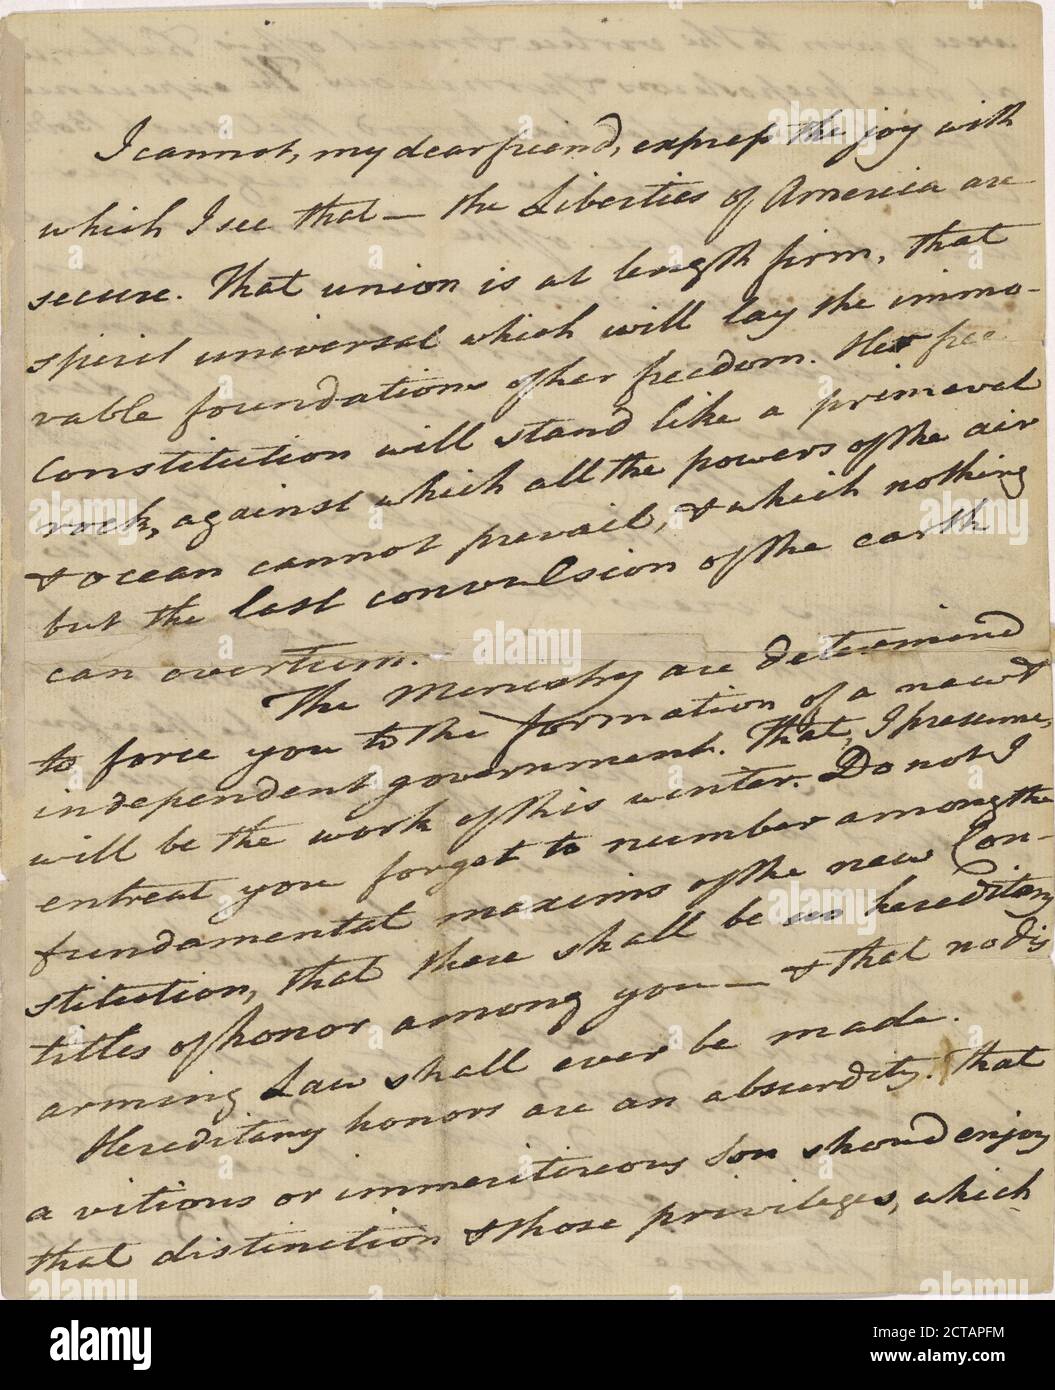 I cannot, my dear friend, express the joy with
which I see that — the Liberties of America are
secure. That union is at length firm, that
spirit universal which will lay the immo-
vable foundations of her freedom. Her free
Constitution will stand like a primeval
rock, against which all the powers of the air
& ocean cannot prevail, & which nothing
but the last convulsion of the earth
can overturn.
The Ministry are determind
to force you to the formation of a new &
independent government. That, I presume,
will be the work of this winter. Do not I
entreat you forget to number among the
fundamental maxims of the new Con-
stitution, that there shall be no hereditary
titles of honor among you — & that no dis
arming Law shall ever be made.
Hereditary honors are an absurdity. That
a vitious or immeritireous son shoud enjoy
that distinction & those privileges, which
alamy
a
alamy
Image ID: 2CTAPFM
www.alamy.com